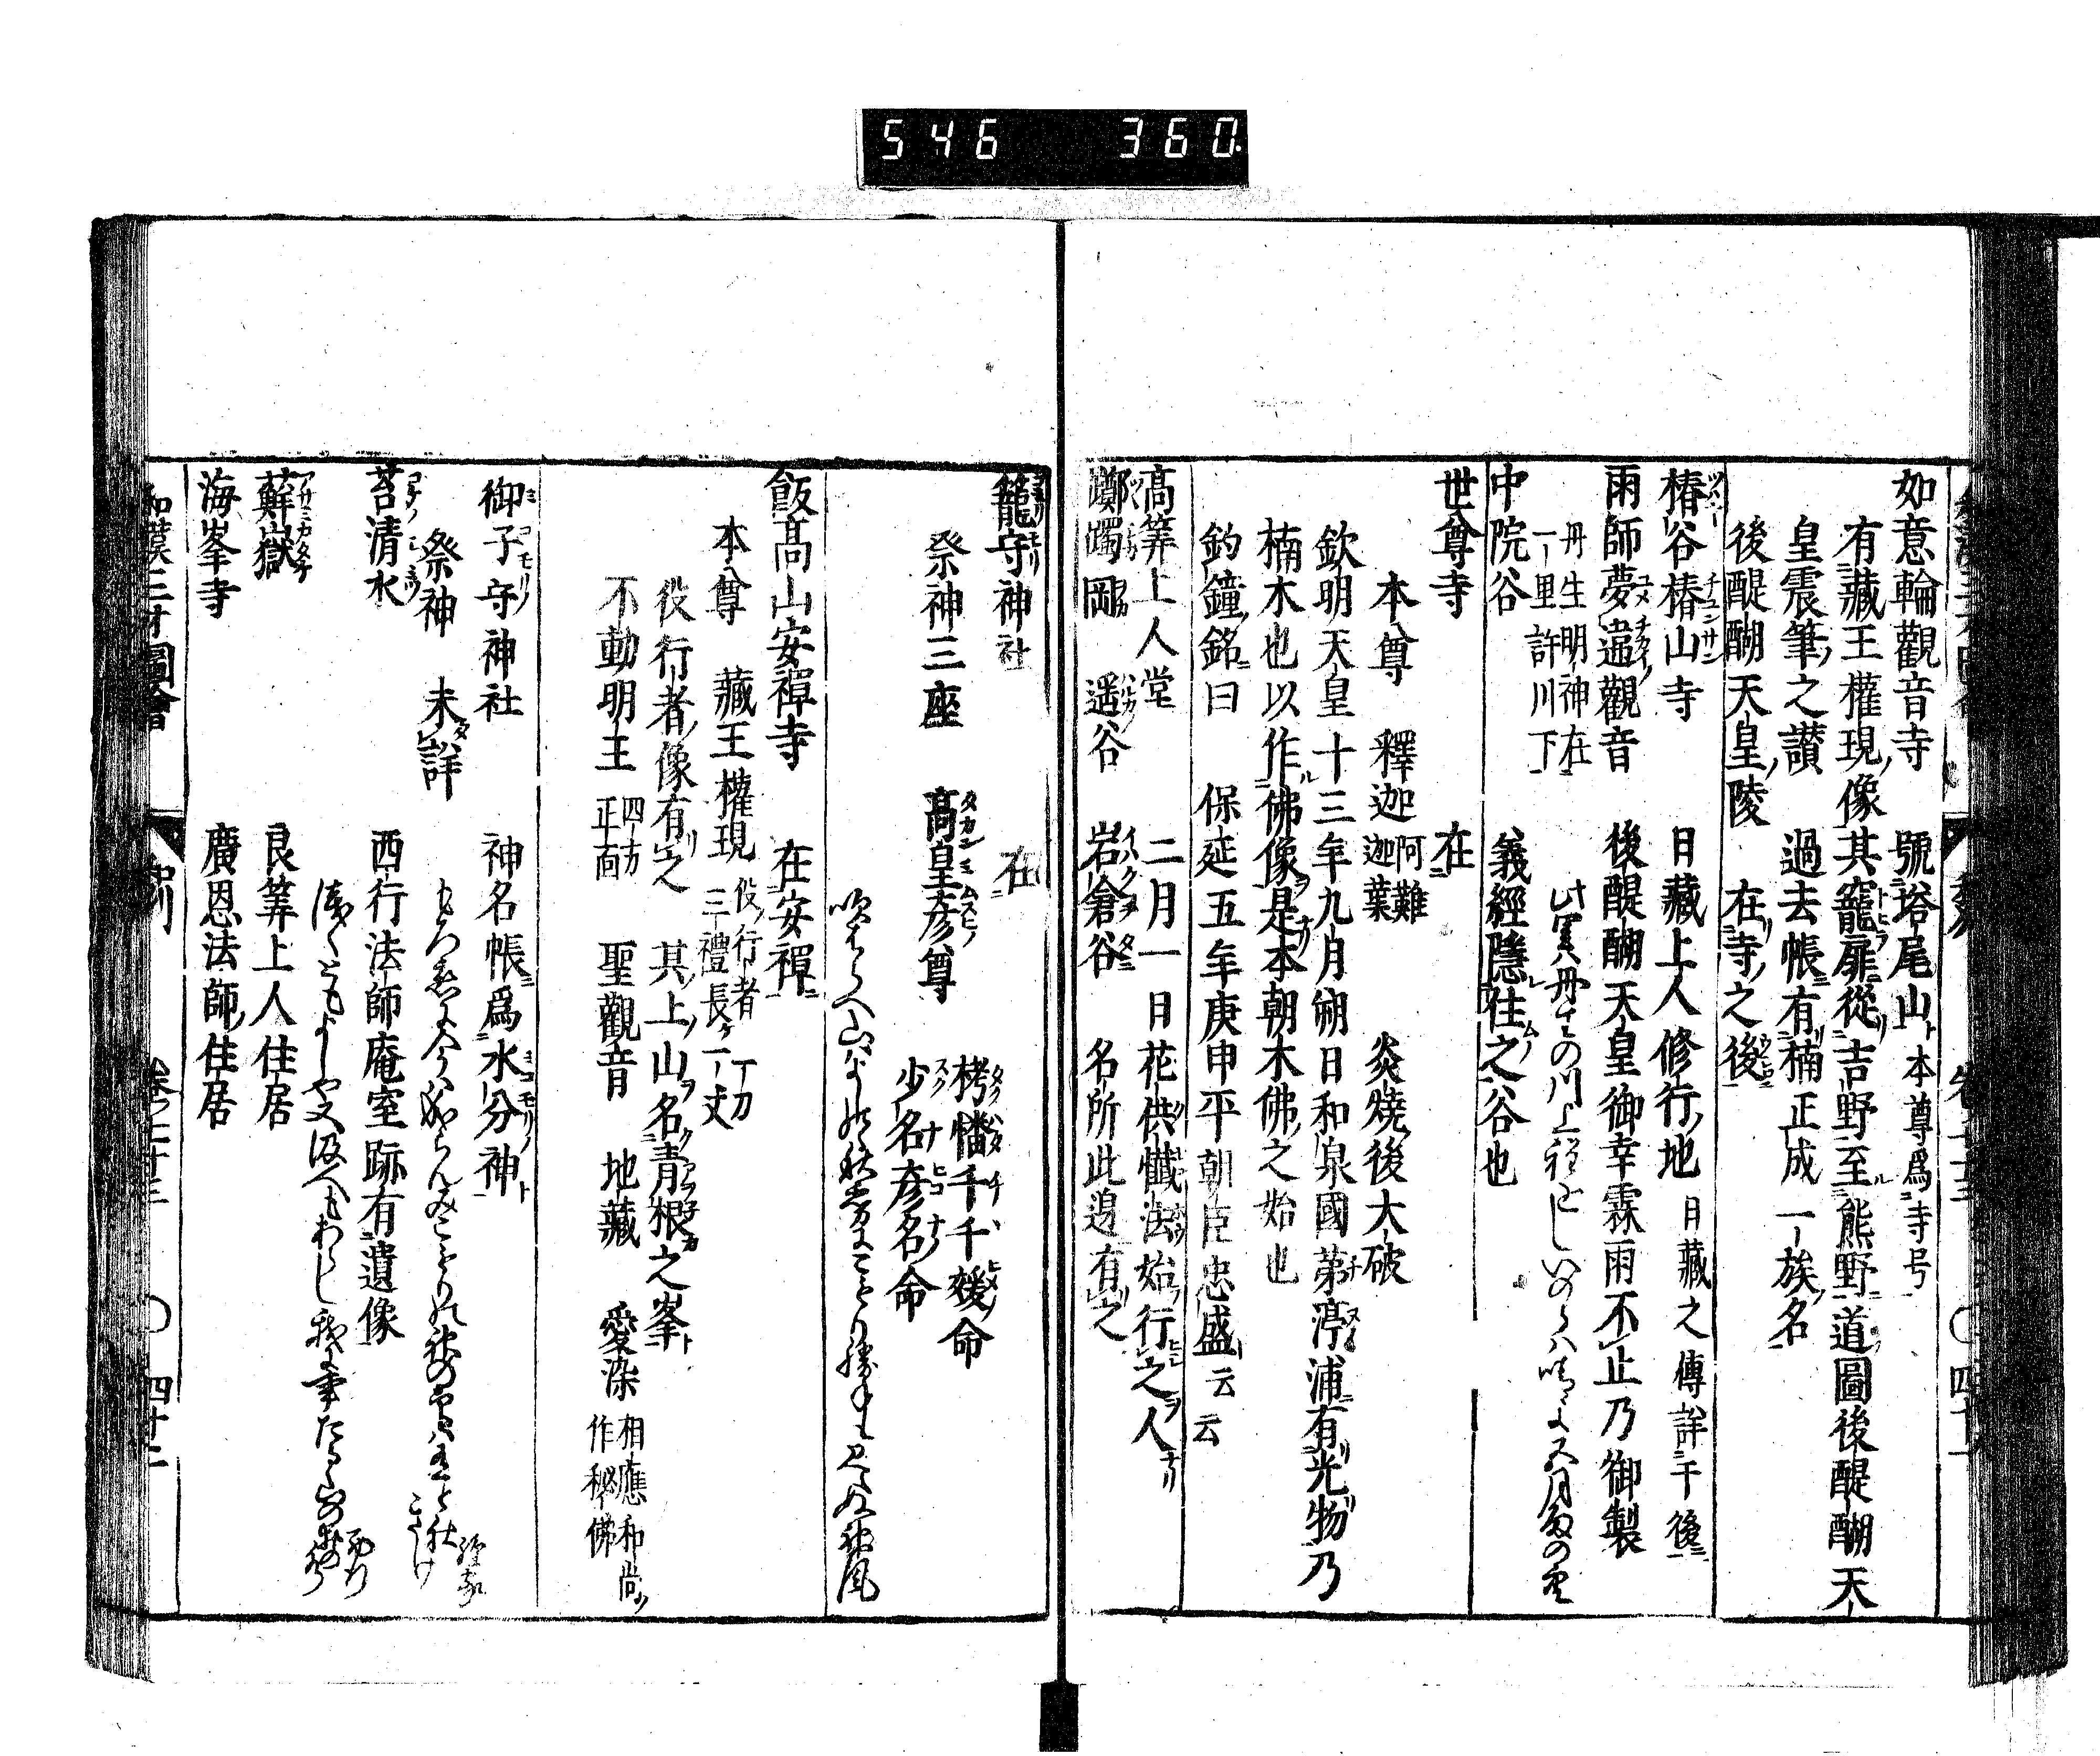 546 360
如意輪觀音寺 號塔尾山 本尊爲寺号
有藏王權現像其龕扉從吉野至熊野道圖後醍醐天
皇震筆之讃 過去帳有楠正成一族名
後醍醐天皇陵 在寺之後
椿谷椿山寺 日藏上人修行地 日藏之傳詳于後
雨師夢違觀音 後醍醐天皇御幸霖雨不止乃御製
丹生明神在
一里許川下
中院谷 義經隱住之谷也
世尊寺 在
本尊 釋迦 阿難 迦葉 炎燒後大破
欽明天皇十三年九月朔日和泉國茅渟浦有光物乃
楠木也以作佛像是本朝木佛之始也
釣鐘銘曰 保延五年庚申平朝臣忠盛云云
高筭上人堂 二月一日花供懺法始行之人
躑躅岡 遥谷 岩倉谷 名所此邉有之
籠守神社 在
祭神三座 髙皇彦尊 栲幡千千媛命
少名彦名命
飯髙山安禪寺 在安禪
本尊 藏王權現 役行者一刀
三禮長一丈
役行者像有之 其上山名青根之峯
不動明王 四方正面 聖觀音 地藏 愛染 相應和尚
作秘佛
御子守神社 神名帳爲水分神
祭神 未詳
苔清水 西行法師庵室跡有遺像
蘚嶽 良筭上人住居
海峯寺 廣恩法師住居
和漢三才圖會 卷之七十三 〇 四十二